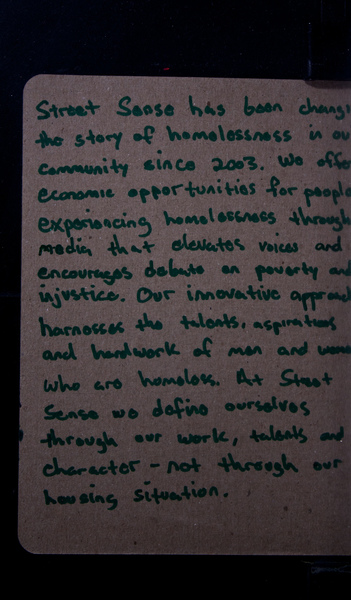 Street Sense has been chang
the story of homelessness in ou
community since 2003. We offe
economic opportunities for people
experiencing homelessness through
media that elevates voices and
encourages debate on poverty and
injustice. Our innovative approac
harnesses the talents, aspirations
and hardwork of men and wome
who are homeless. At Street
Sense we define ourselves
through our work, talents and
character - not through our
housing situation.